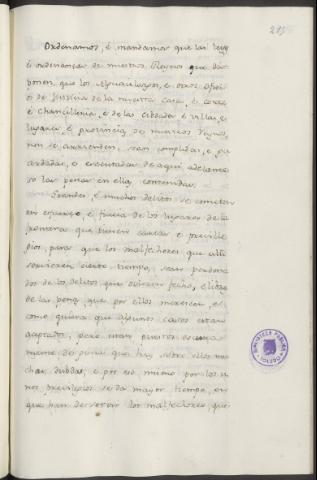 215
Ordenamos, é mandamos que las leyes
é ordenanzas de nuestros Reynos que dis-
ponen, que los Alguacilazgos, é otros oficios
de Justicia de la nuestra casa, é corte
é chancilleria, é de las cibdades é villas, é
lugares é provincias, de nuestros Reynos,
non se arrienden, sean complidas, é gu
ardadas, é executadas de aqui adelante
so las penas en ellas contenidas.
Grandes, é muchos delitos se cometen
en esfuerzo, é fiucia de los lugares de la
frontera que tienen cartas é preville
gios, para que los malfechores que alli
sirvieren cierto tiempo, sean perdona
dos de los delitos que ovieren fecho, é libres
de las penas que por ellos merescen, é
como quiera que algunos casos estan
aceptados, pero
que hay sobre ellos mu
chas dubdas, é por eso mismo por los u
nos previlegios se da mayor tiempo, en
que han de servir los malfechores que
BIBLIOTECA PUBLICA
TOLEDO